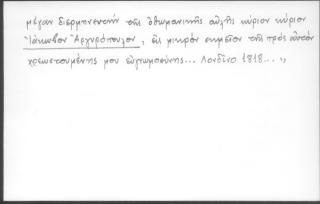 μέγαν διερμηνευτήν τῆς ὀθωμανικῆς αὐλῆς κύριον κύριον
Ἰάκωβον Ἀργυρόπουλον, εἰς μικρόν σημεῖον τῆς πρός αὐτόν
χρεωστουμένης μου εὐγνωμοσύνης... Λονδῖνο 1818...„